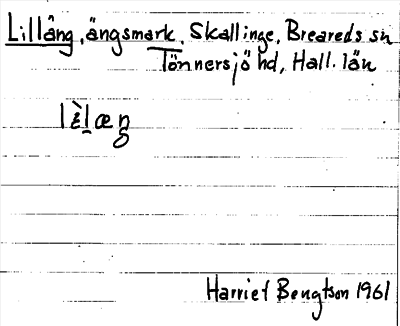 Lilläng, ängsmark, Skallinge, Breareds sn
Tönnersjö hd, Hall. län
lèlæŋ
Harriet Bengtson 1961